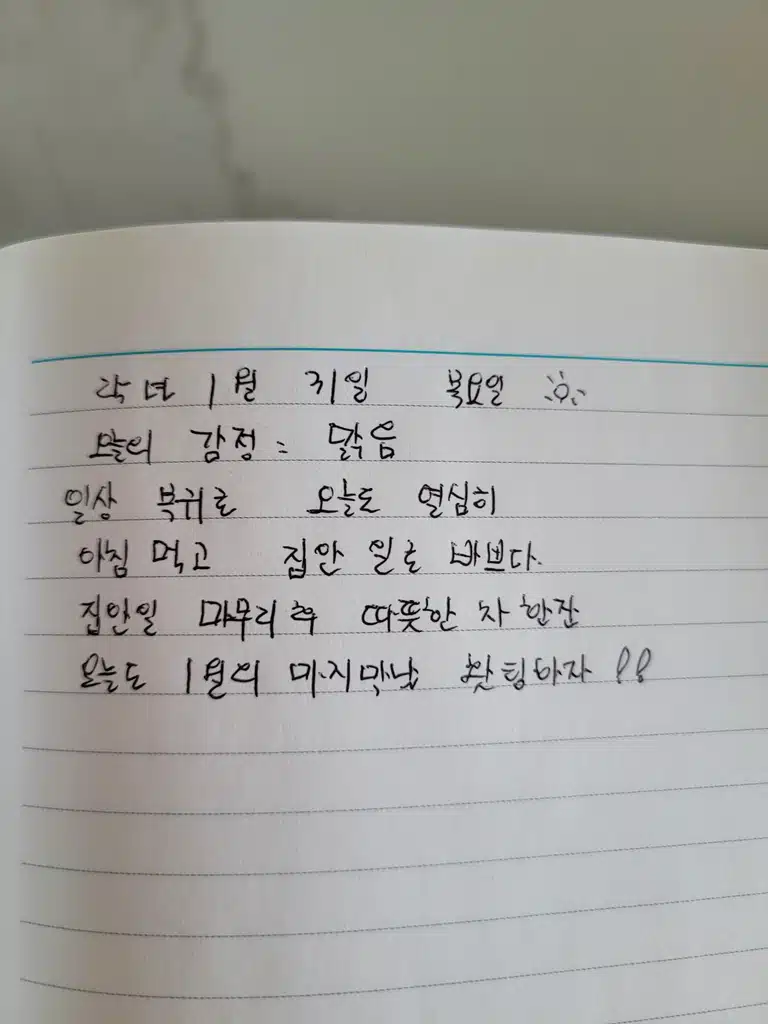 작년 1월 31일 목요일
오늘의 감정 : 맑음
일상 복귀로 오늘도 열심히
아침 먹고 집안 일로 바쁘다.
집안일 마무리 후 따뜻한 차 한잔
오늘도 1월의 마지막날 홧팅하자 !!